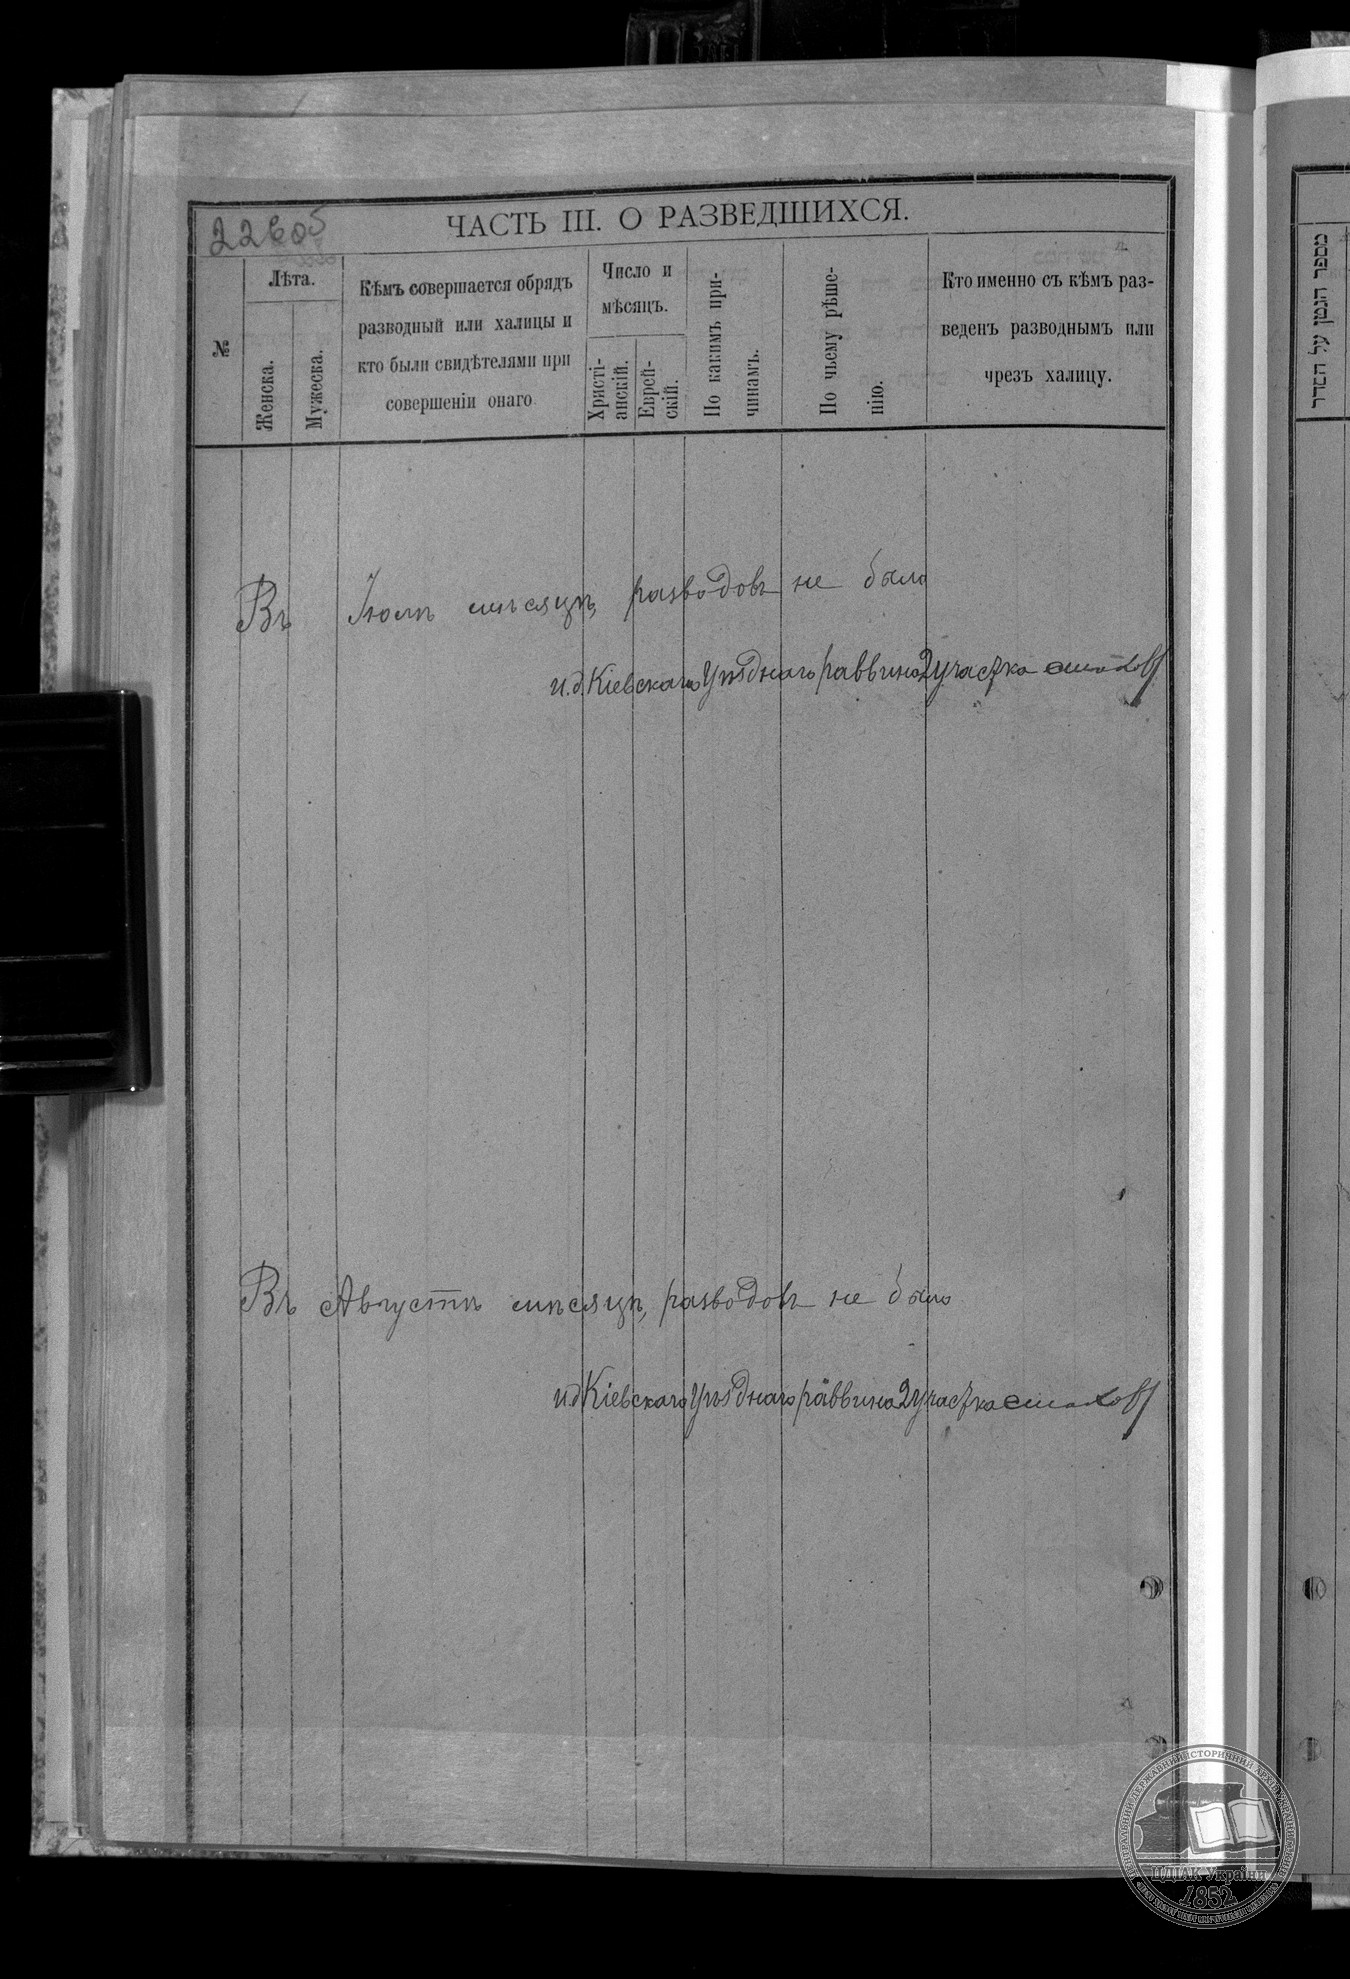 22605
ЧАСТЬ III. О РАЗВЕДШИХСЯ.
№
Лѣта.
Женска.
Мужеска.
Кѣмъ совершается обрядъ
разводный или халицы и
кто были свидѣтелями при
совершеніи онаго
Число и
мѣсяцъ.
Христі-
анскій.
Еврей-
скій.
По какимъ при-
чинамъ.
По чьему рѣше-
нію.
Кто именно съ кѣмъ раз-
веденъ разводнымъ или
чрезъ халицу.
Въ Іюлѣ мѣсяцѣ, разводовъ не было
и.д. Кіевскаго Уѣзднаго раввина 2 участка
Въ Августѣ мѣсяцѣ, разводовъ не было
и.д. Кіевскаго Уѣзднаго раввина 2 участка
מספר הנשן על הסדר
ЦДІАК України
1852